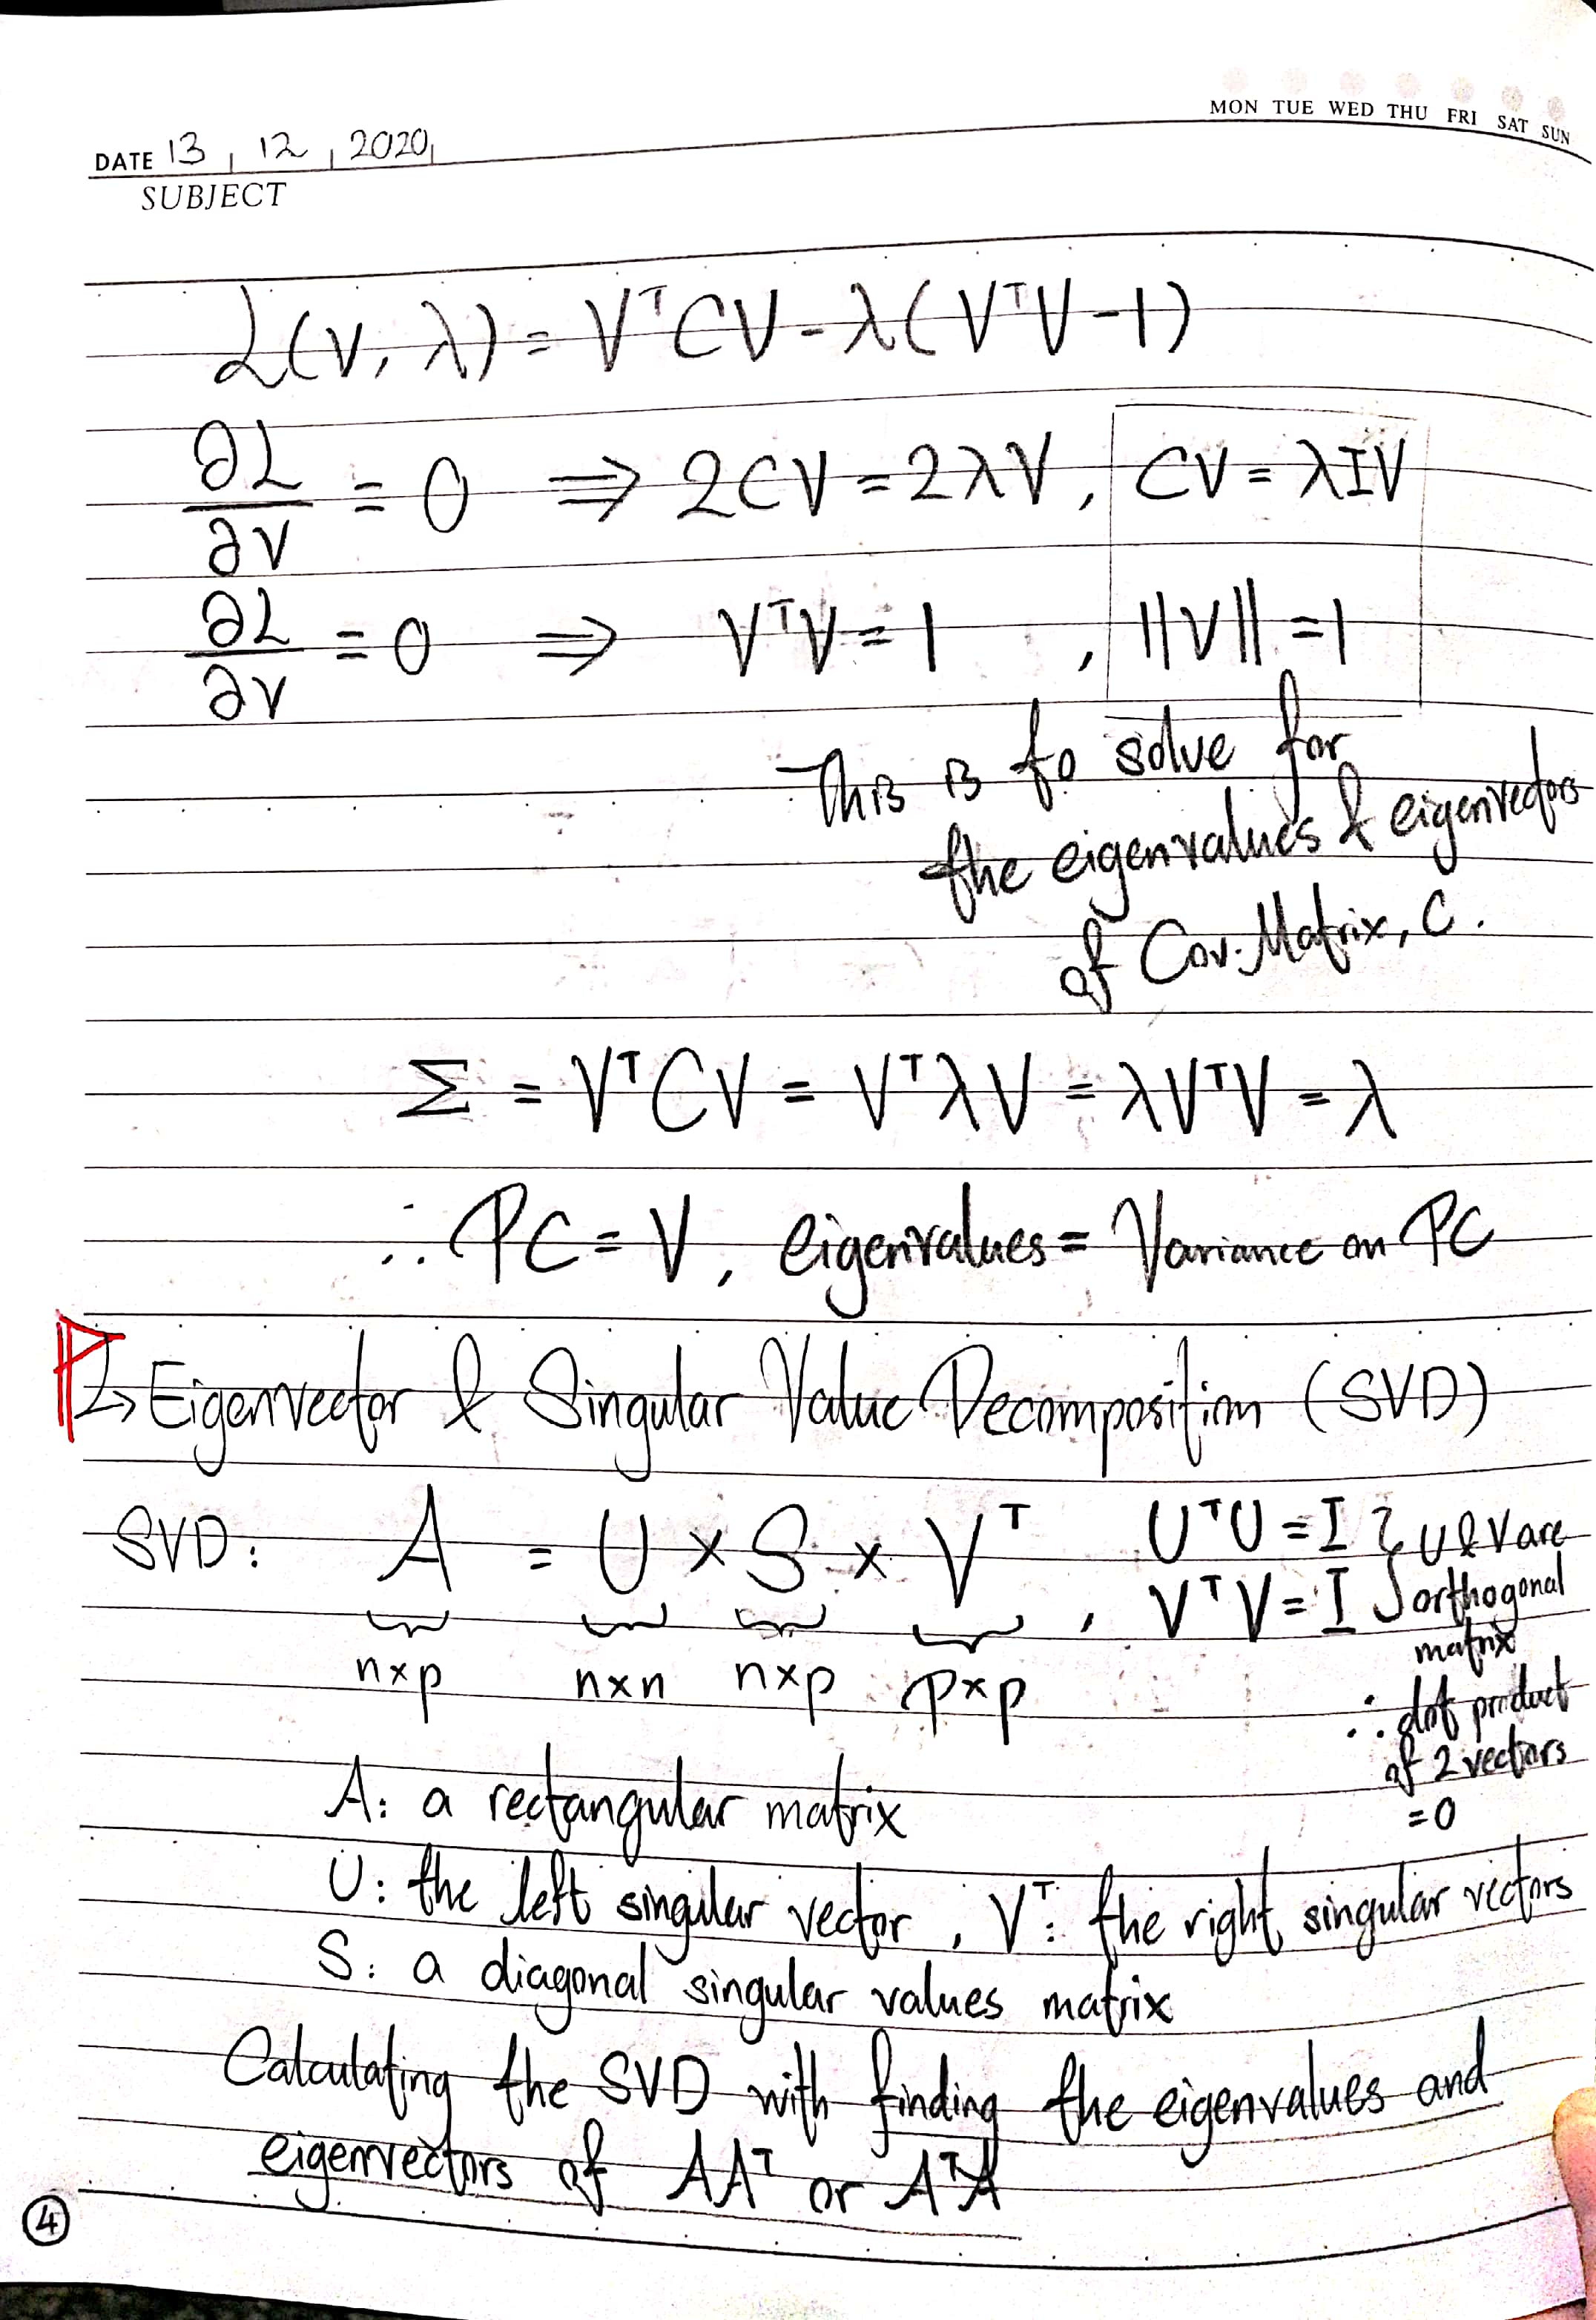 MON TUE WED THU FRI SAT SUN
DATE 13 , 12 , 2020,
SUBJECT
L(V, λ) = VᵀCV - λ(VᵀV - 1)
∂L/∂V = 0 ⇒ 2CV = 2λV, CV = λIV
∂L/∂V = 0 ⇒ VᵀV = 1 , ||V|| = 1
This is to solve for
the eigenvalues & eigenvectors
of Cov. Matrix, C.
Σ = VᵀCV = VᵀλV = λVᵀV = λ
∴ PC = V, eigenvalues = Variance on PC
↳ Eigenvector & Singular Value Decomposition (SVD)
SVD: A = U × S × Vᵀ , UᵀU = I } U & V are
VᵀV = I } orthogonal
matrix
n×p n×n n×p p×p
∴ dot product
of 2 vectors
= 0
A: a rectangular matrix
U: the left singular vector, Vᵀ: the right singular vectors
S: a diagonal singular values matrix
Calculating the SVD with finding the eigenvalues and
eigenvectors of AAᵀ or AᵀA
4